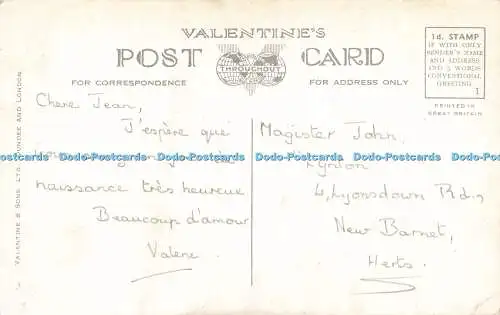 VALENTINE'S
POST CARD
THROUGHOUT
FOR CORRESPONDENCE
FOR ADDRESS ONLY
1d. STAMP
IF WITH ONLY
SENDER'S NAME
AND ADDRESS
AND 5 WORDS
CONVENTIONAL
GREETING
1
PRINTED IN
GREAT BRITAIN
VALENTINE & SONS LTD. DUNDEE AND LONDON
Chere Jean,
J'espère que
naissance très heureuse
Beaucoup d'amour
Valerie
Magister John
Lyndon
4, Lyonsdown Rd.,
New Barnet,
Herts.
Postcards Postcards Postcards Postcards Postcards Postcards Postcards